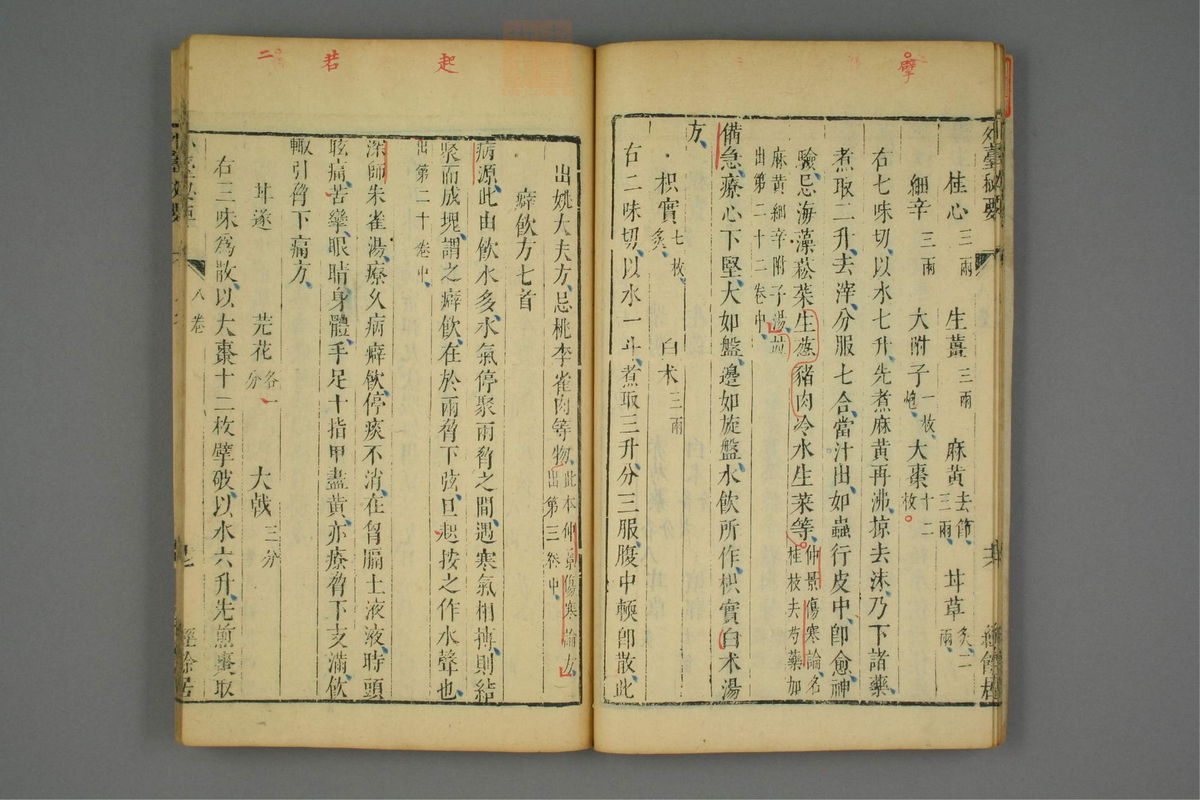 擘
外臺秘要
桂心三兩 生薑三兩 麻黃去節三兩 甘草炙二兩
細辛三兩 大附子一枚炮 大棗十二枚
右七味切以水七升先煮麻黃再沸掠去沫乃下諸藥
煮取二升去滓分服七合當汁出如蟲行皮中卽愈神
驗忌海藻菘菜生蔥豬肉冷水生菜等仲景傷寒論名桂枝去芍藥加
麻黃細辛附子湯 出第二十二卷中
備急療心下堅大如盤邊如旋盤水飲所作枳實白朮湯
方
枳實七枚炙 白朮三兩
右二味切以水一斗煮取三升分三服腹中軟卽散此
起
若
二
出姚大夫方忌桃李雀肉等物此本仲景傷寒論方出第三卷中
癖飲方七首
病源此由飲水多水氣停聚兩脅之間遇寒氣相搏則結
聚而成塊謂之癖飲在於兩脅下弦亘起按之作水聲也
出第二十卷中
深師朱雀湯療久病癖飲停痰不消在胷膈上液液時頭
眩痛苦攣眼睛身體手足十指甲盡黃亦療脅下支滿飲
輒引脅下痛方
甘遂 芫花各一分 大戟三分
右三味爲散以大棗十二枚擘破以水六升先煎棗取
八卷
經餘居